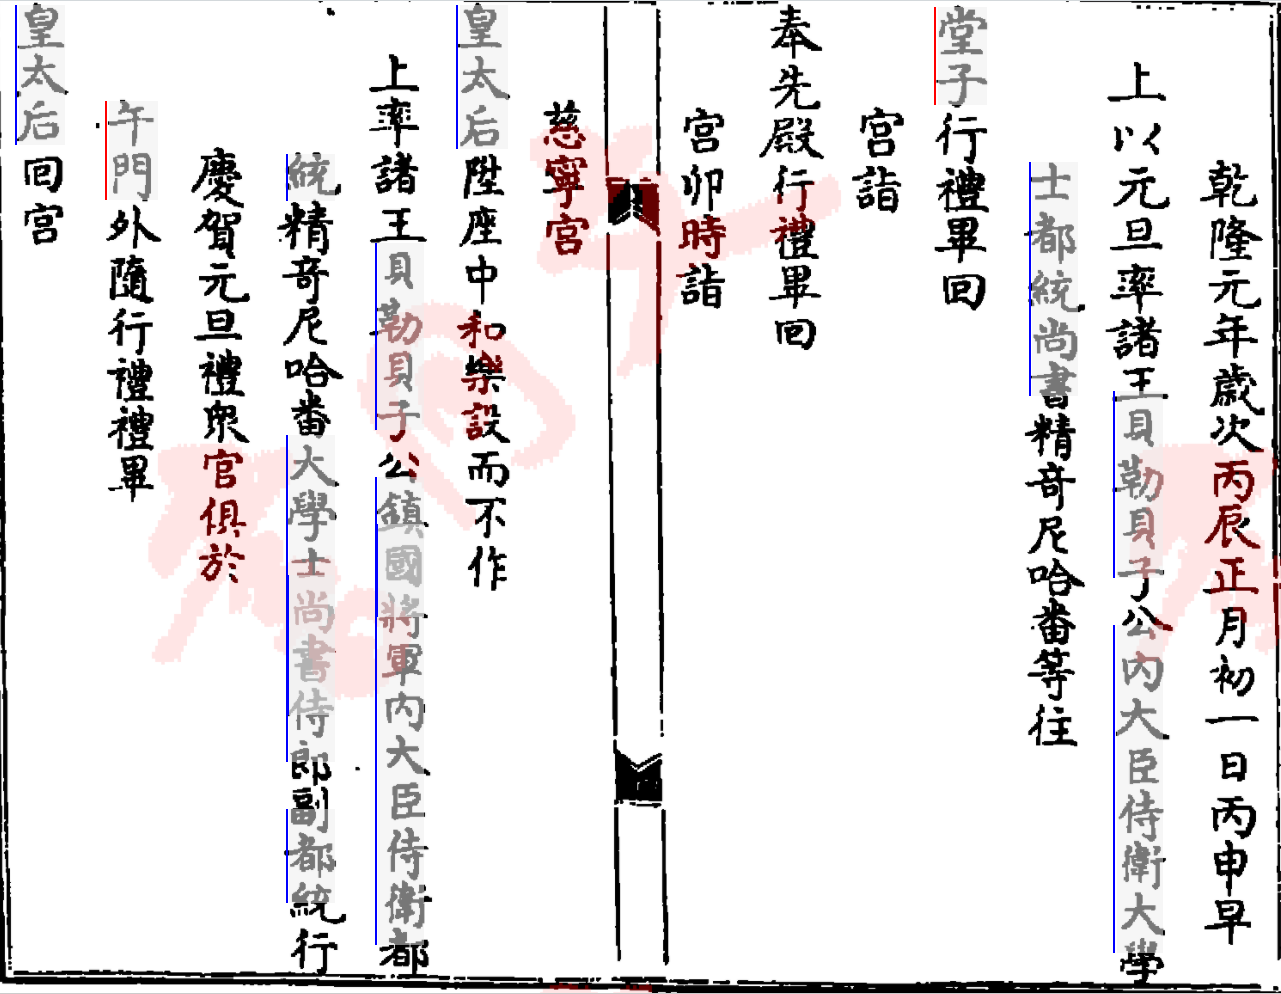 乾隆元年歲次丙辰正月初一日丙申早
上以元旦率諸王貝勒貝子公內大臣侍衛大學
士都統尚書精奇尼哈番等往
堂子行禮畢回
宮詣
奉先殿行禮畢回
宮卯時詣
慈寧宮
皇太后陞座中和樂設而不作
上率諸王貝勒貝子公鎮國將軍內大臣侍衛都
統精奇尼哈番大學士尚書侍郎副都統行
慶賀元旦禮眾官俱於
午門外隨行禮禮畢
皇太后回宮